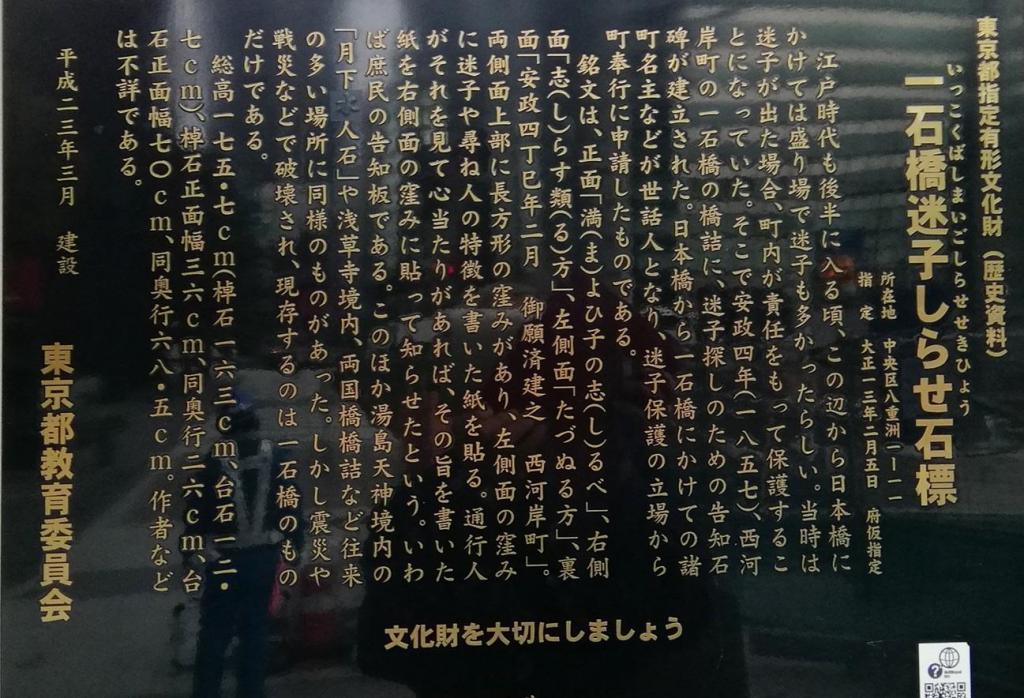 東京都指定有形文化財（歴史資料）
いっこくばしまいごしらせせきひょう
一石橋迷子しらせ石標
所在地　中央区八重洲一ー一一
指　定　大正一三年二月五日　府仮指定
江戸時代も後半に入る頃、この辺から日本橋に
かけては盛り場で迷子も多かったらしい。当時は
迷子が出た場合、町内が責任をもって保護するこ
とになっていた。そこで安政四年(一八五七)、西河
岸町の一石橋の橋詰に、迷子探しのための告知石
碑が建立された。日本橋から一石橋にかけての諸
町名主などが世話人となり、迷子保護の立場から
町奉行に申請したものである。
銘文は、正面「満(ま)よひ子の志(し)るべ」、右側
面「志(し)らす類(る)方」、左側面「たづぬる方」、裏
面「安政四丁巳年二月　御願済建之　西河岸町」。
両側面上部に長方形の窪みがあり、左側面の窪み
に迷子や尋ね人の特徴を書いた紙を貼る。通行人
がそれを見て心当たりがあれば、その旨を書いた
紙を右側面の窪みに貼って知らせたという。いわ
ば庶民の告知板である。このほか湯島天神境内の
「月下氷人石」や浅草寺境内、両国橋橋詰など往来
の多い場所に同様のものがあった。しかし震災や
戦災などで破壊され、現存するのは一石橋のもの
だけである。
総高一七五・七cm(棹石一六三cm、台石一二・
七cm)、棹石正面幅三六cm、同奥行二六cm、台
石正面幅七〇cm、同奥行六八・五cm。作者など
は不詳である。
平成二三年三月　建設
東京都教育委員会
文化財を大切にしましょう